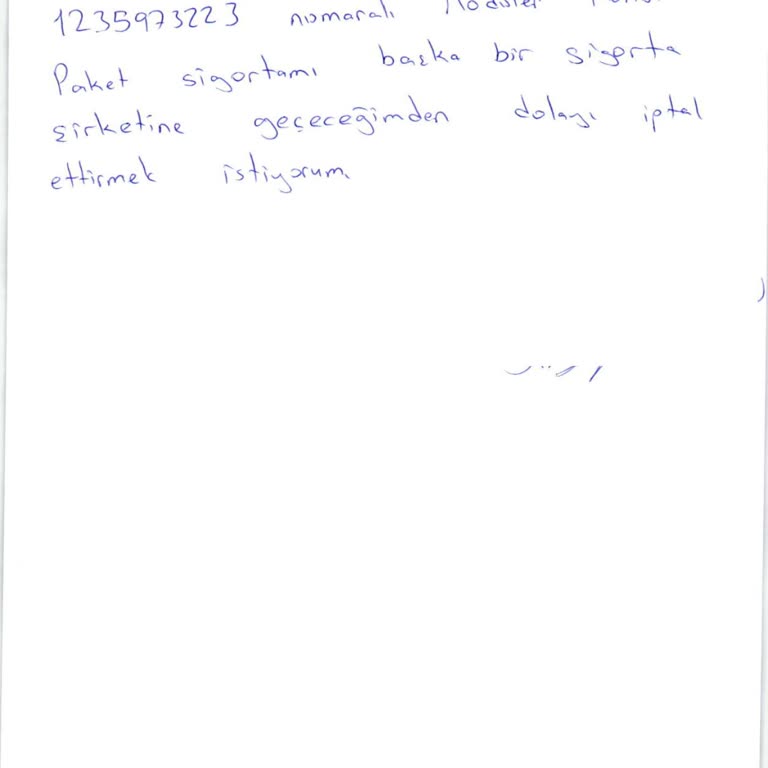 1235973223 numaralı Modüler
Paket sigortamı başka bir sigorta
şirketine geçeceğimden dolayı iptal
ettirmek istiyorum.